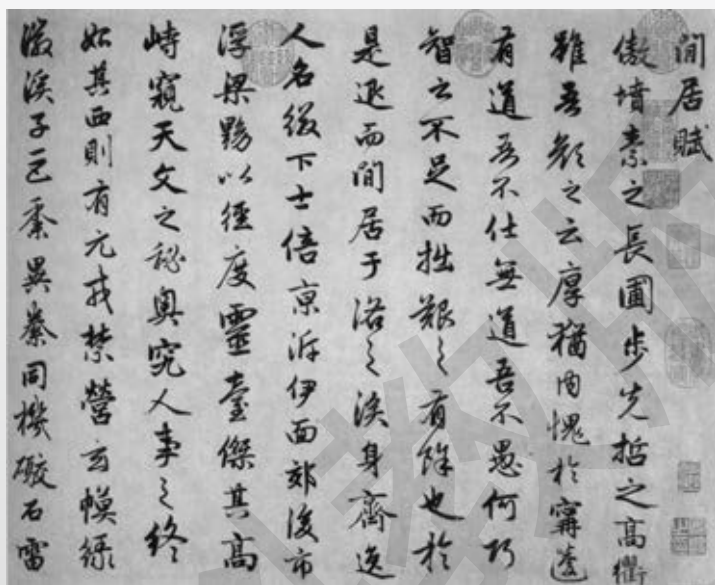 閒居賦
傲墳素之長圃步先哲之高衢
雖吾顔之云厚猶内愧於甯蘧
有道吾不仕無道吾不愚何巧
智之不足而拙艱之有餘也於
是退而閒居于洛之涘身齊逸
人名綴下士倍京泝伊面郊後市
浮梁黝以徑度靈臺傑其高
峙窺天文之秘奥究人事之終
始其西則有元戎禁營玄幙緑
徽溪子巨黍異絭同機礮石雷